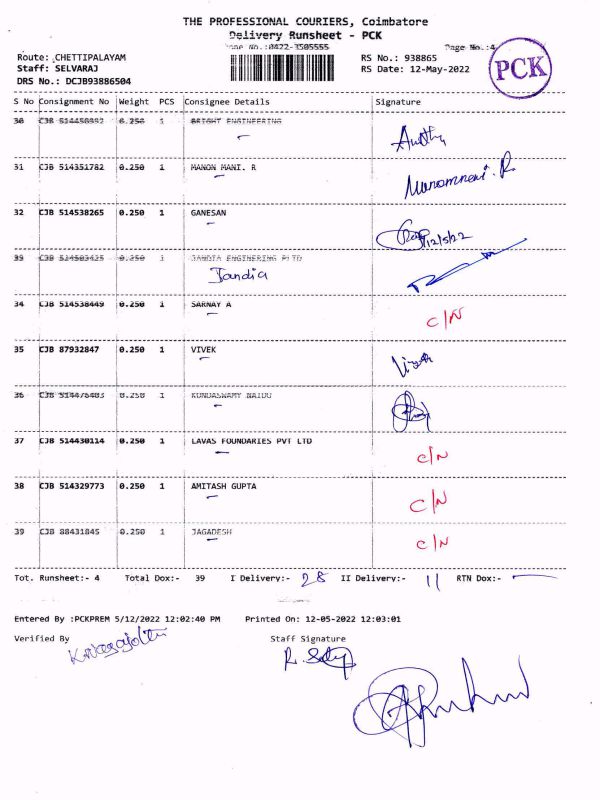 THE PROFESSIONAL COURIERS, Coimbatore
Delivery Runsheet - PCK
Phone No.:0422-3505555 Page No.:4
Route: CHETTIPALAYAM RS No.: 938865
Staff: SELVARAJ RS Date: 12-May-2022
DRS No.: DCJB93886504
PCK
S No Consignment No Weight PCS Consignee Details Signature
30 CJB 0.250 1 BRIGHT ENGINEERING
31 CJB 514351782 0.250 1 MANON MANI. R
32 CJB 514538265 0.250 1 GANESAN
12/5/22
CJB 0.250 1 JANDIA ENGINERING P LTD
Jandia
34 CJB 514538449 0.250 1 SARNAY A
C/N
35 CJB 87932847 0.250 1 VIVEK
36 CJB 0.250 1 KUNDASWAMY NAIDU
37 CJB 514430114 0.250 1 LAVAS FOUNDARIES PVT LTD
C/N
38 CJB 514329773 0.250 1 AMITASH GUPTA
C/N
39 CJB 88431845 0.250 1 JAGADESH
C/N
Tot. Runsheet:- 4 Total Dox:- 39 I Delivery:- 28 II Delivery:- 11 RTN Dox:-
Entered By :PCKPREM 5/12/2022 12:02:40 PM Printed On: 12-05-2022 12:03:01
Verified By Staff Signature